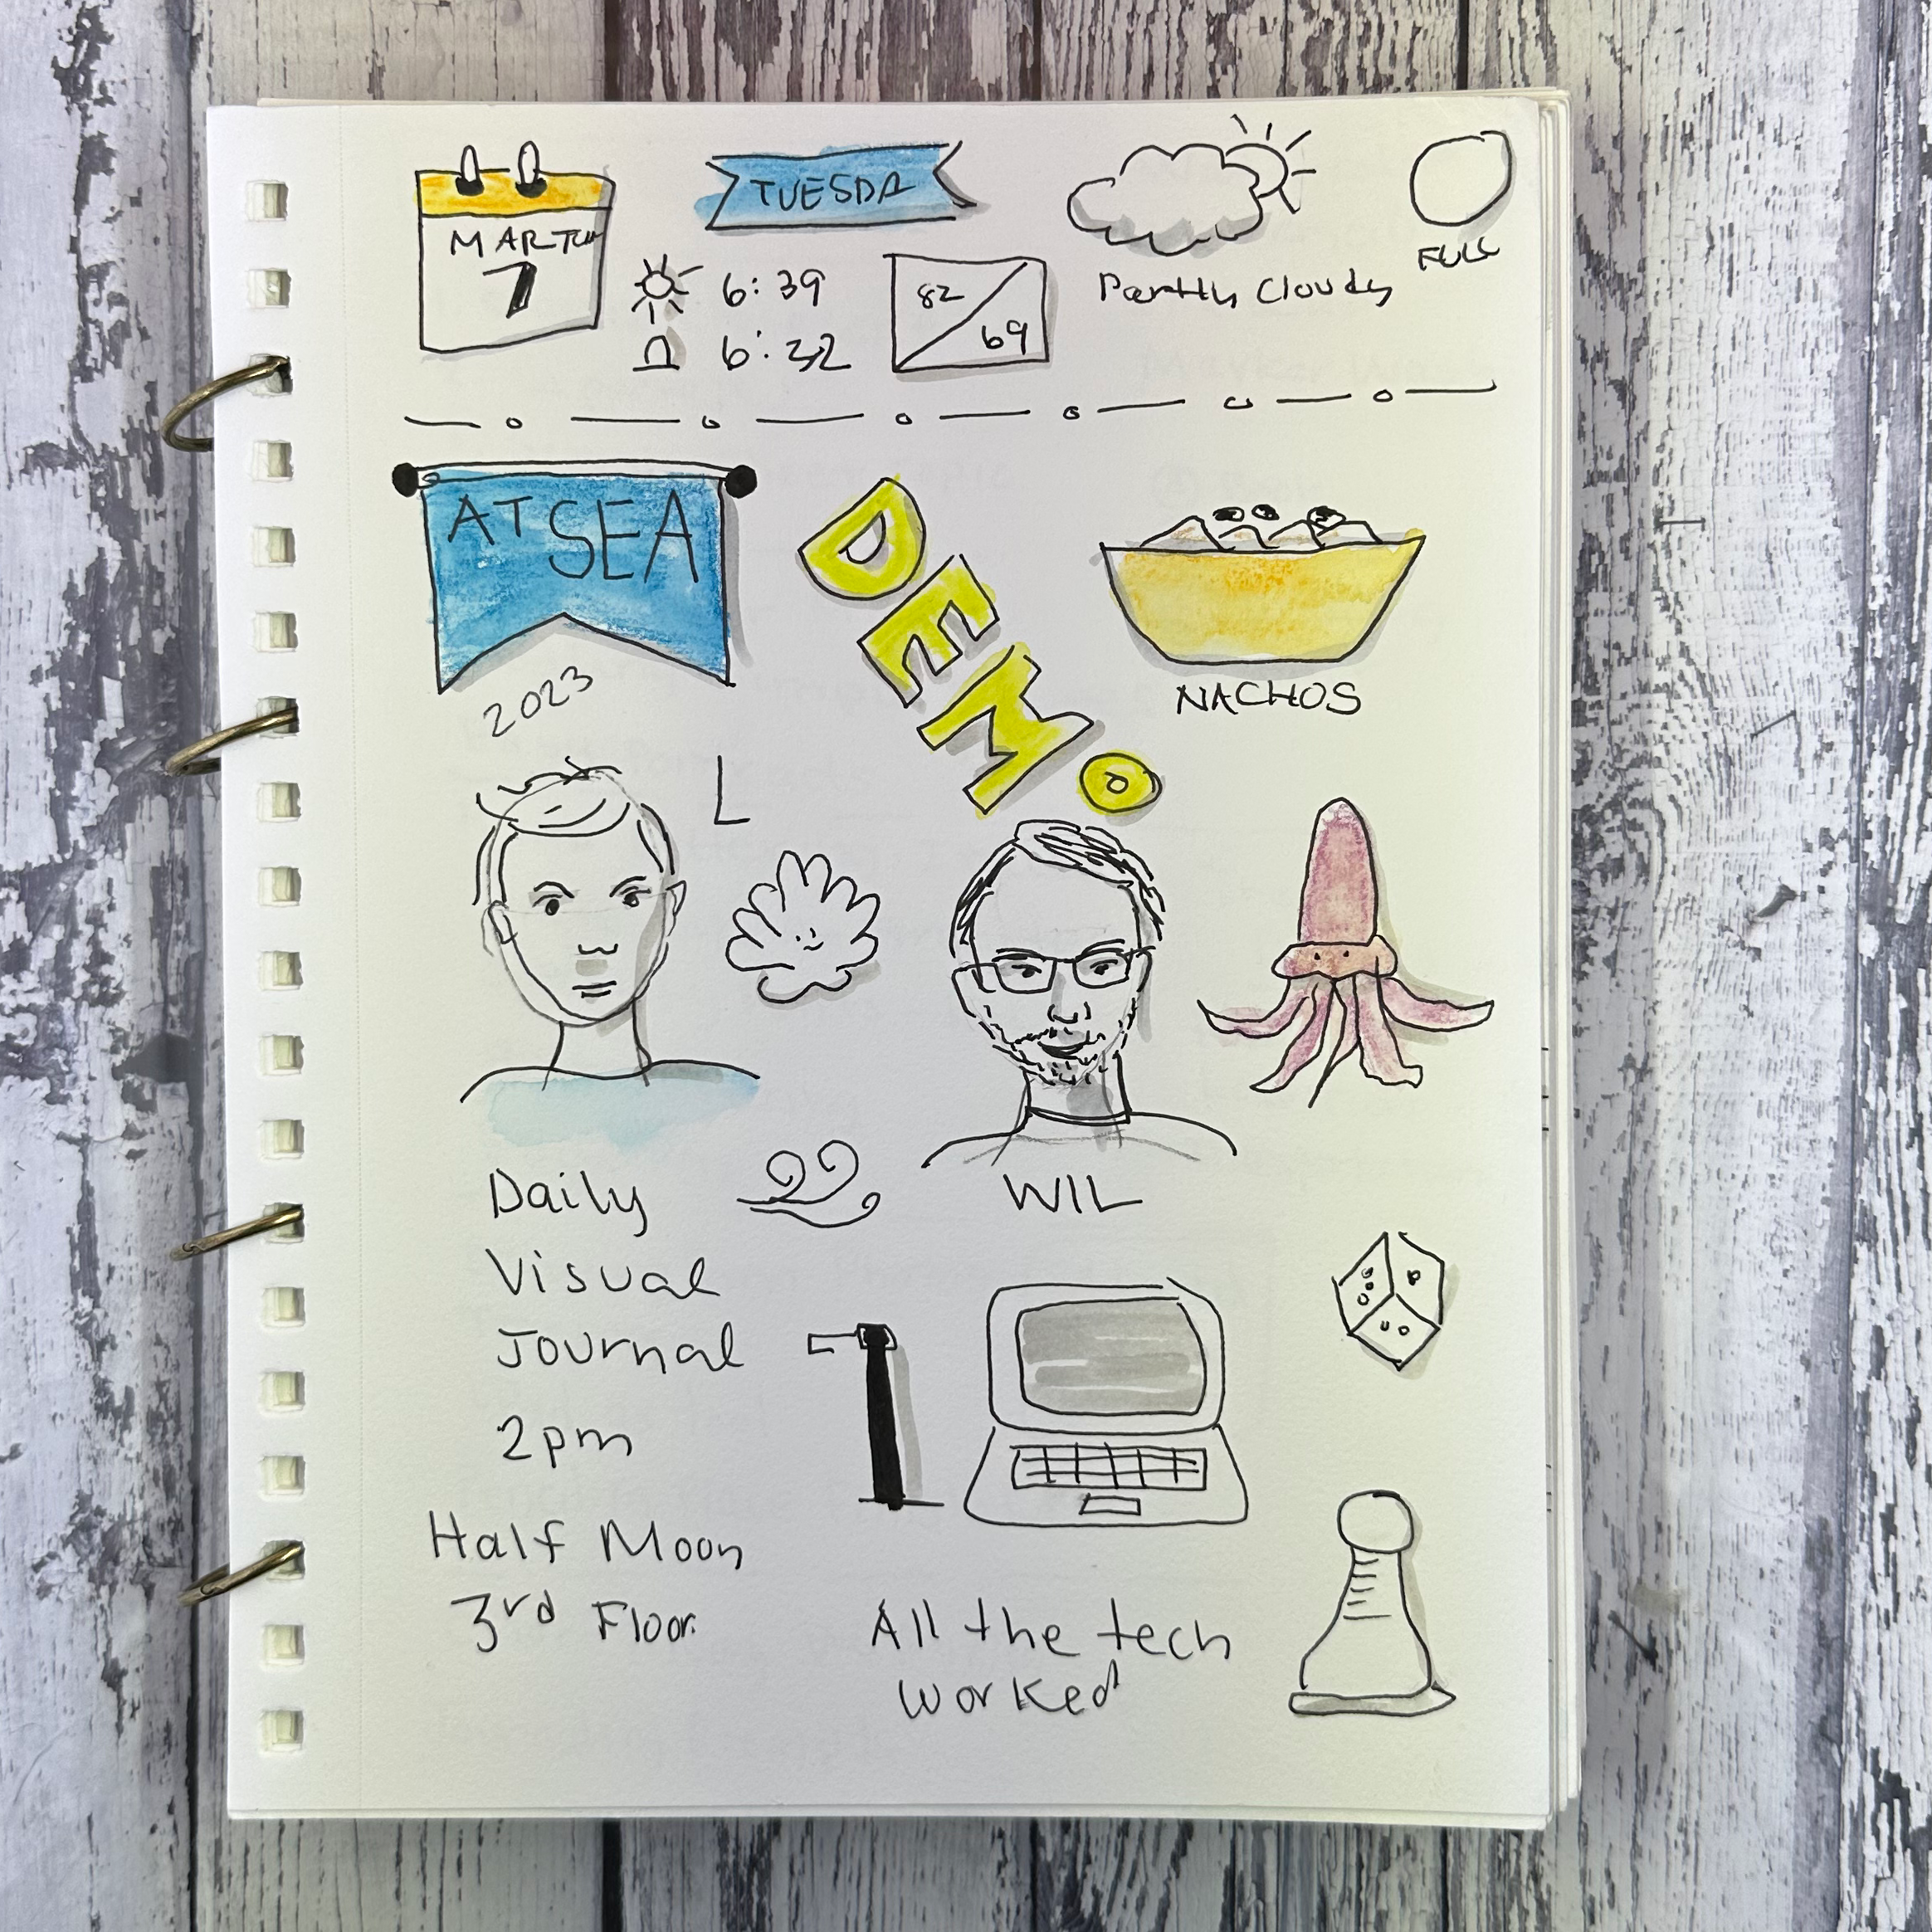 MARTCH
7
TUESDA
6:39
6:32
82
69
Partly Cloudy
FULL
AT SEA
2023
DEMO
NACHOS
L
WIL
Daily
Visual
Journal
2pm
Half Moon
3rd Floor
All the tech
worked